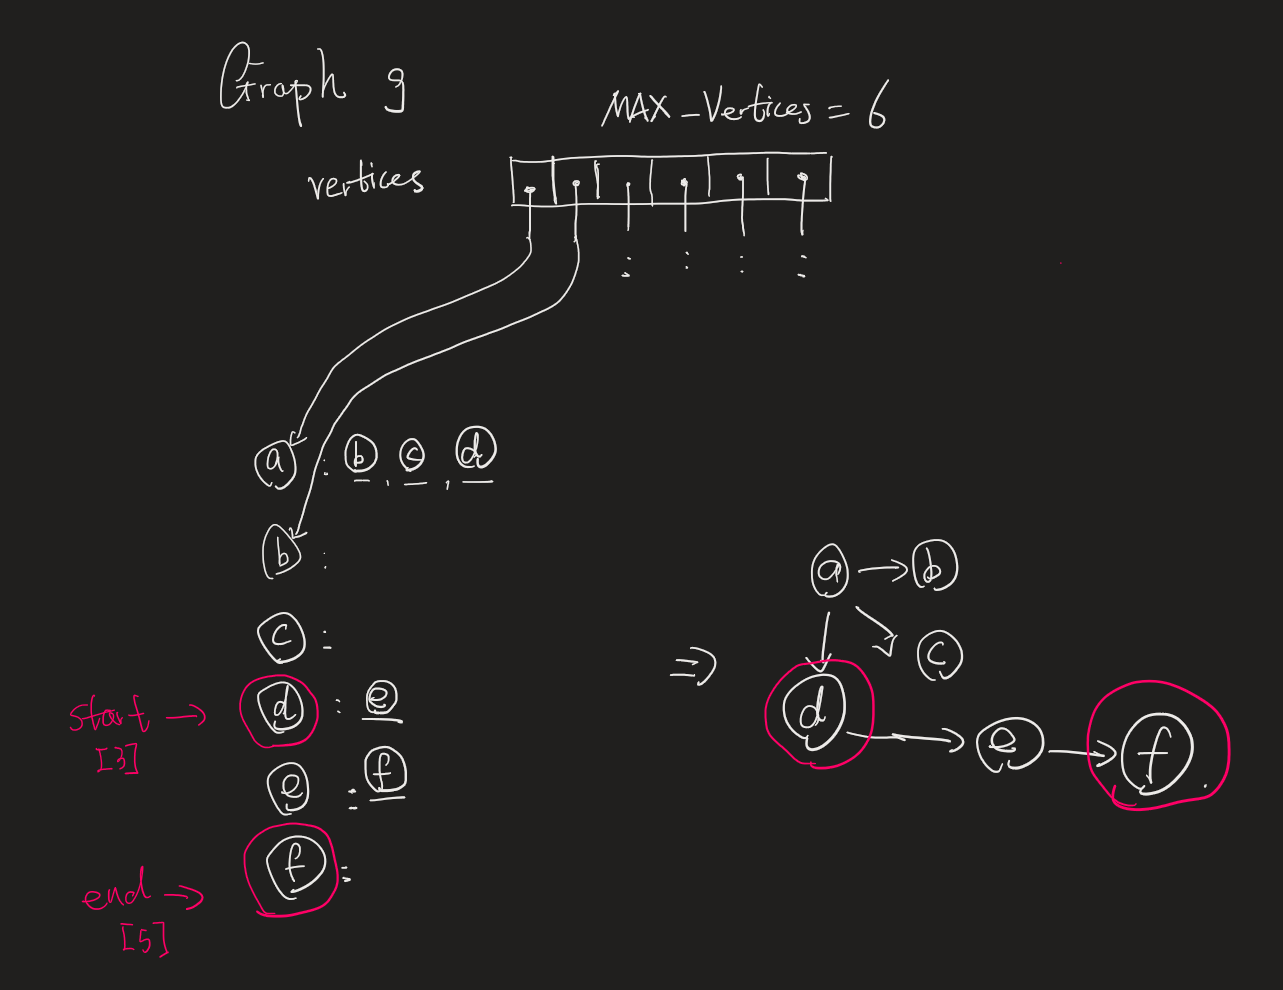 Graph g
MAX_Vertices = 6
vertices
a : b, c, d
b :
c :
start → d : e
[3]
e : f
end → f :
[5]
⇒
a → b
c
d → e → f